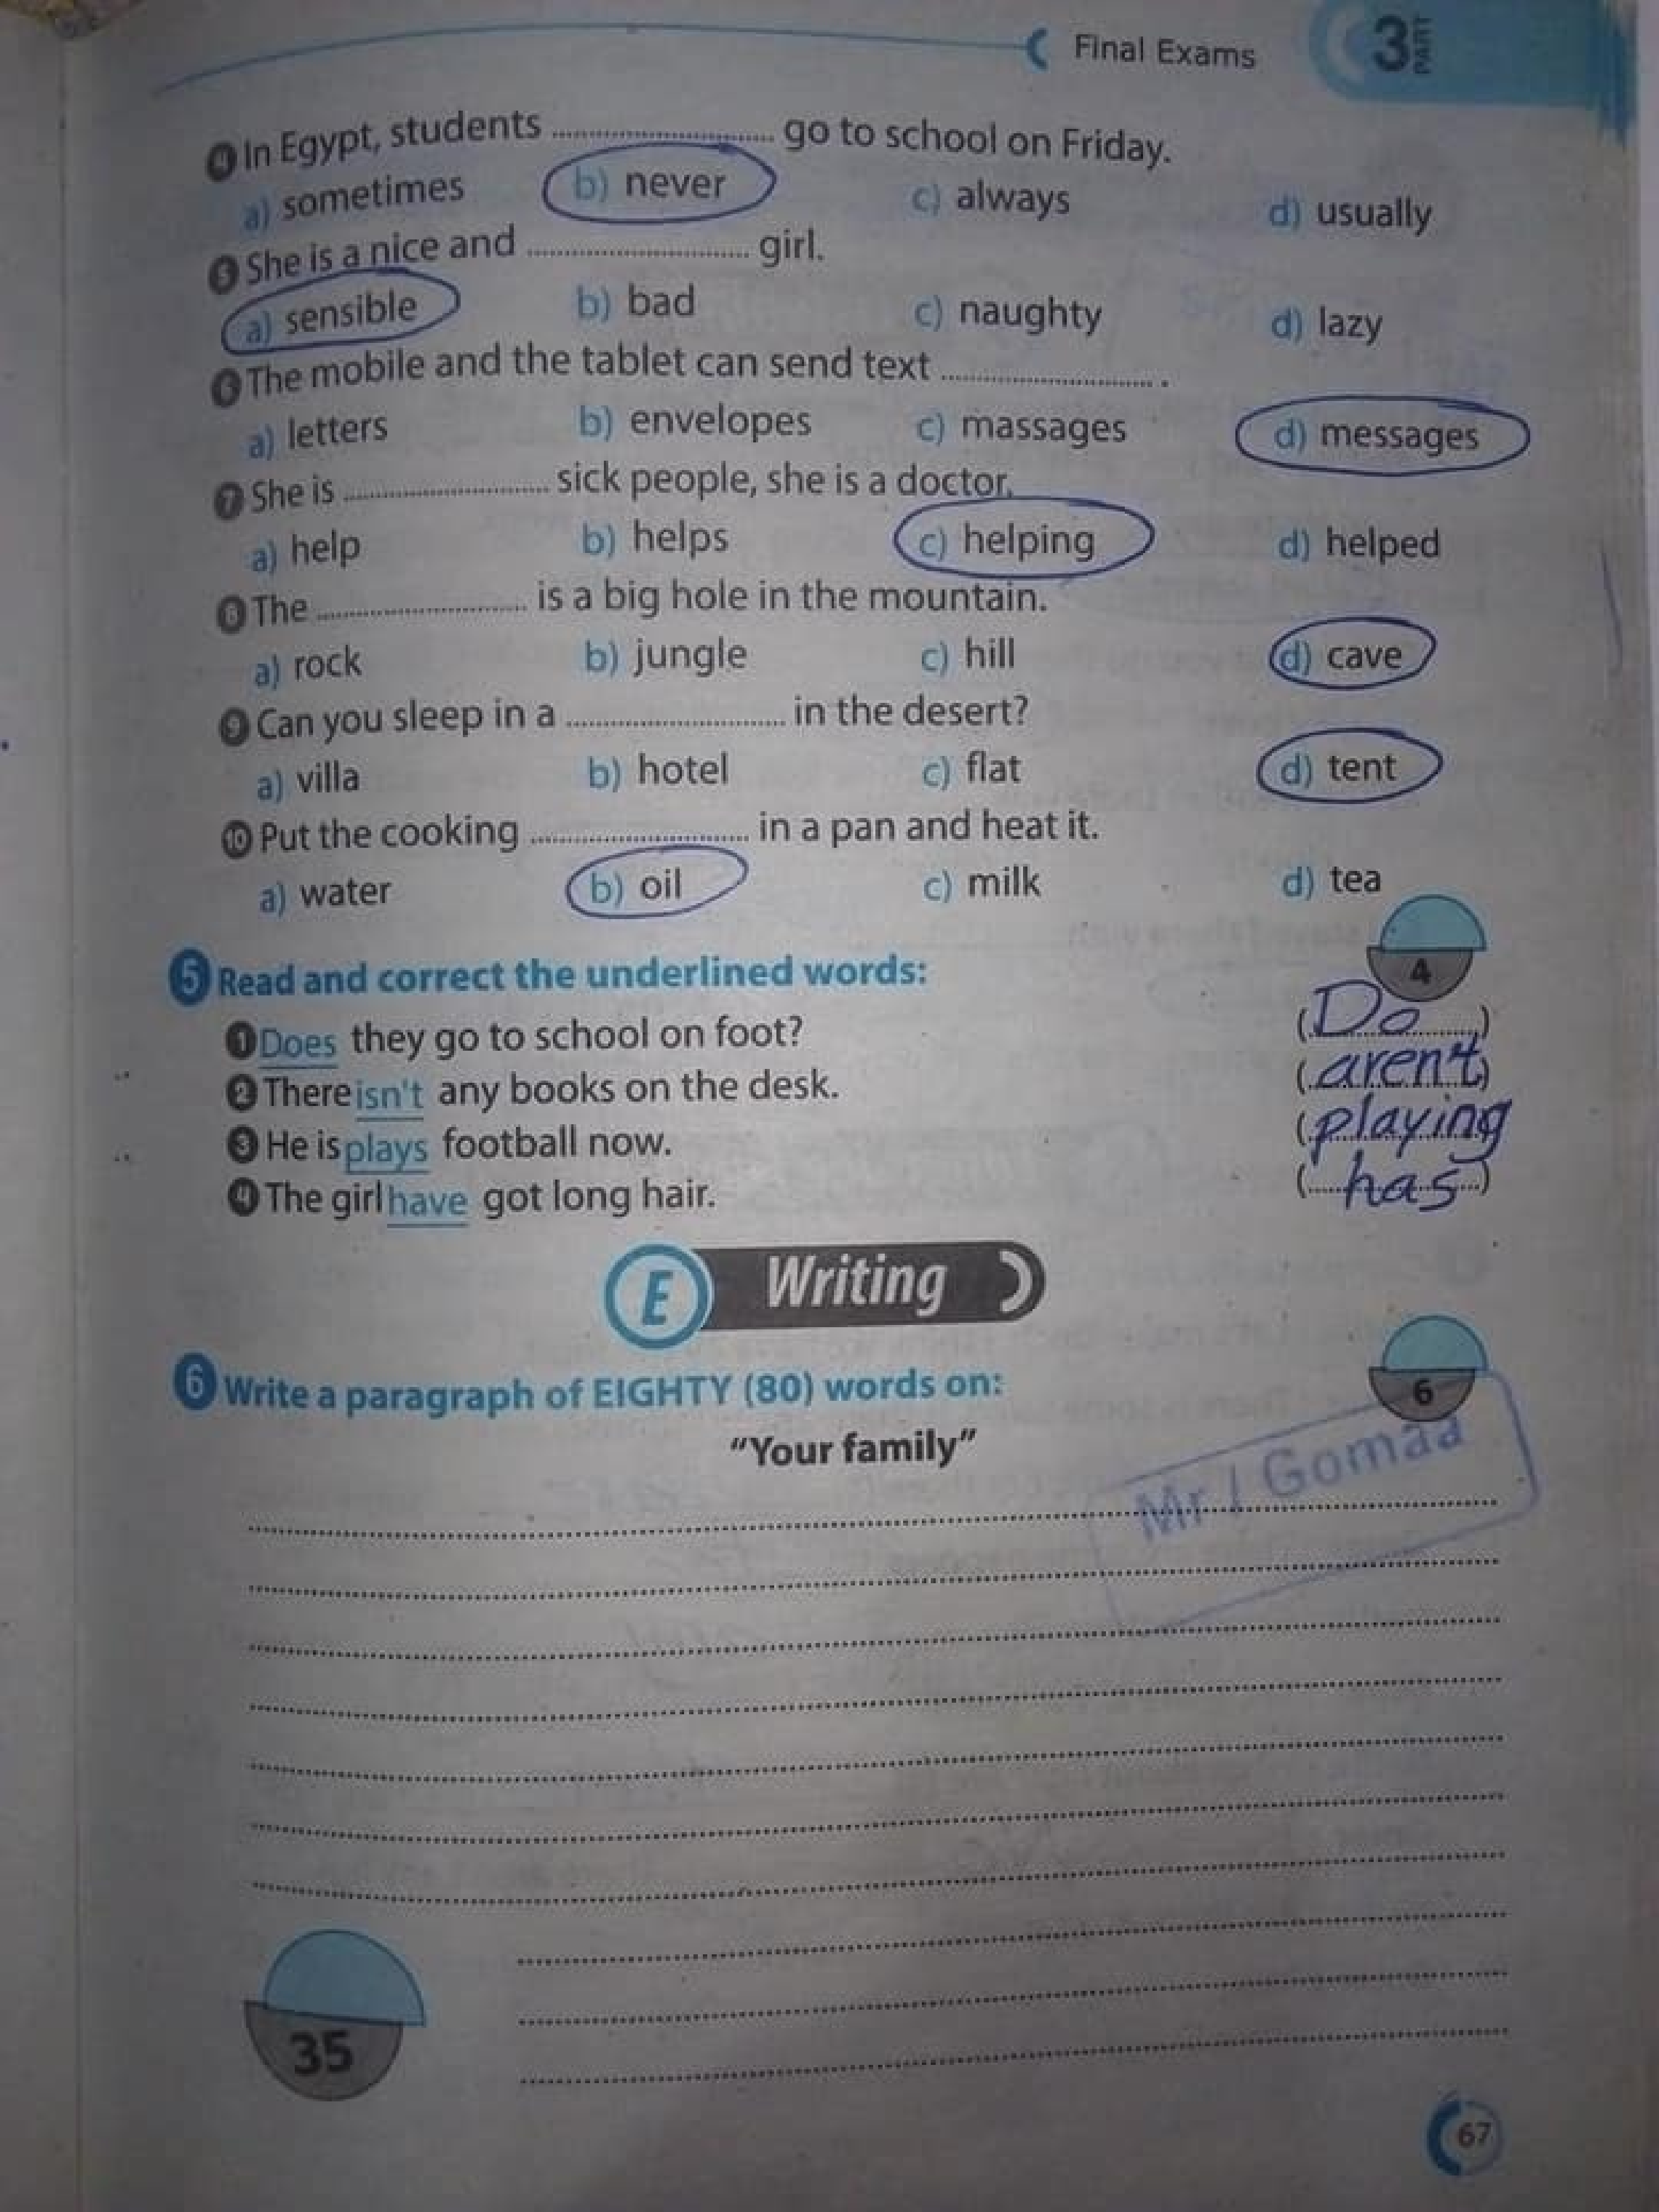 Final Exams
3 PART
4 In Egypt, students .................... go to school on Friday.
a) sometimes b) never c) always d) usually
5 She is a nice and .................... girl.
a) sensible b) bad c) naughty d) lazy
6 The mobile and the tablet can send text .................... .
a) letters b) envelopes c) massages d) messages
7 She is .................... sick people, she is a doctor.
a) help b) helps c) helping d) helped
8 The .................... is a big hole in the mountain.
a) rock b) jungle c) hill d) cave
9 Can you sleep in a .................... in the desert?
a) villa b) hotel c) flat d) tent
10 Put the cooking .................... in a pan and heat it.
a) water b) oil c) milk d) tea
5 Read and correct the underlined words:
4
1 Does they go to school on foot? (Do)
2 There isn't any books on the desk. (aren't)
3 He is plays football now. (playing
4 The girl have got long hair. (has)
E Writing
6 Write a paragraph of EIGHTY (80) words on:
6
"Your family"
Mr / Gomaa
35
67